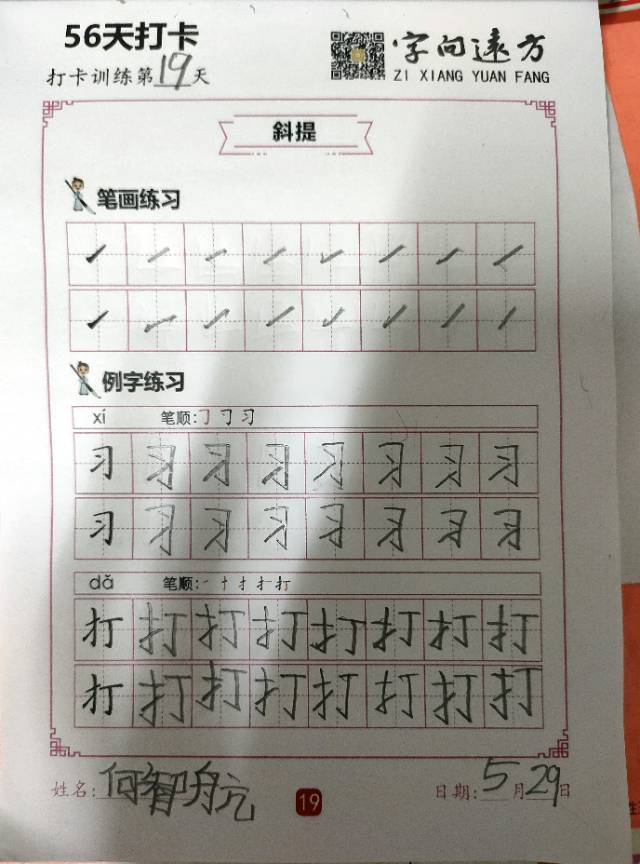 56天打卡
打卡训练第19天
字向遠方
ZI XIANG YUAN FANG
斜提
笔画练习
例字练习
xí 笔顺:
习 习 习 习 习 习 习 习
习 习 习 习 习 习 习 习
dǎ 笔顺:
打 打 打 打 打 打 打 打
打 打 打 打 打 打 打 打
姓名:何智舟亢
19
日期:5月29日